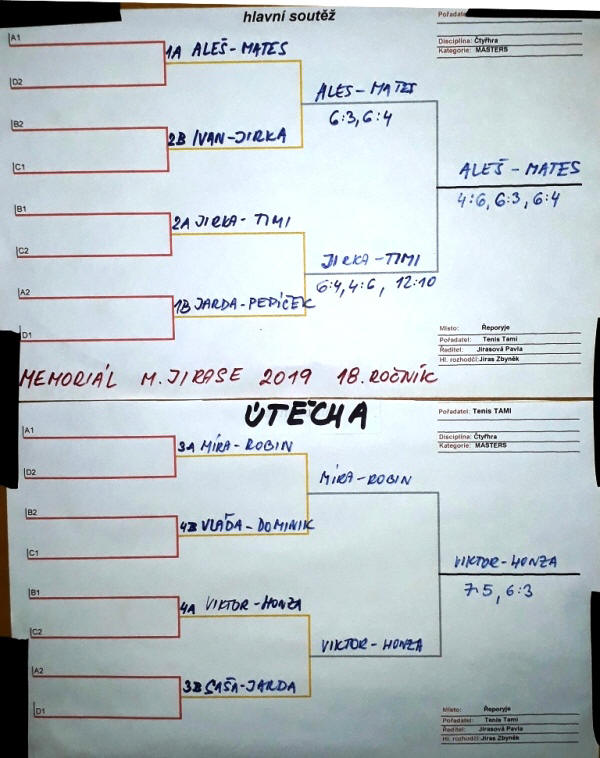 hlavní soutěž
Pořadatel
Disciplina: Čtyřhra
Kategorie: MASTERS
A1
1A ALEŠ-MATES
D2
ALEŠ-MATES
6:3, 6:4
B2
2B IVAN-JIRKA
C1
ALEŠ - MATES
4:6, 6:3, 6:4
B1
2A JIRKA-TIMI
C2
JIRKA-TIMI
6:4, 4:6, 12:10
A2
1B JARDA-PEPÍČEK
D1
Místo: Řeporyje
Pořadatel: Tenis Tami
Ředitel: Jirasová Pavla
Hl. rozhodčí: Jiras Zbyněk
MEMORIÁL M. JIRASE 2019 18. ROČNÍK
ÚTĚCHA
Pořadatel: Tenis TAMI
Disciplina: Čtyřhra
Kategorie: MASTERS
A1
3A MÍRA-ROBIN
D2
MÍRA-ROBIN
B2
4B VLÁĎA-DOMINIK
C1
VIKTOR-HONZA
7:5, 6:3
B1
4A VIKTOR-HONZA
C2
VIKTOR-HONZA
A2
3B SAŠA-JARDA
D1
Místo: Řeporyje
Pořadatel: Tenis Tami
Ředitel: Jirasová Pavla
Hl. rozhodčí: Jiras Zbyněk